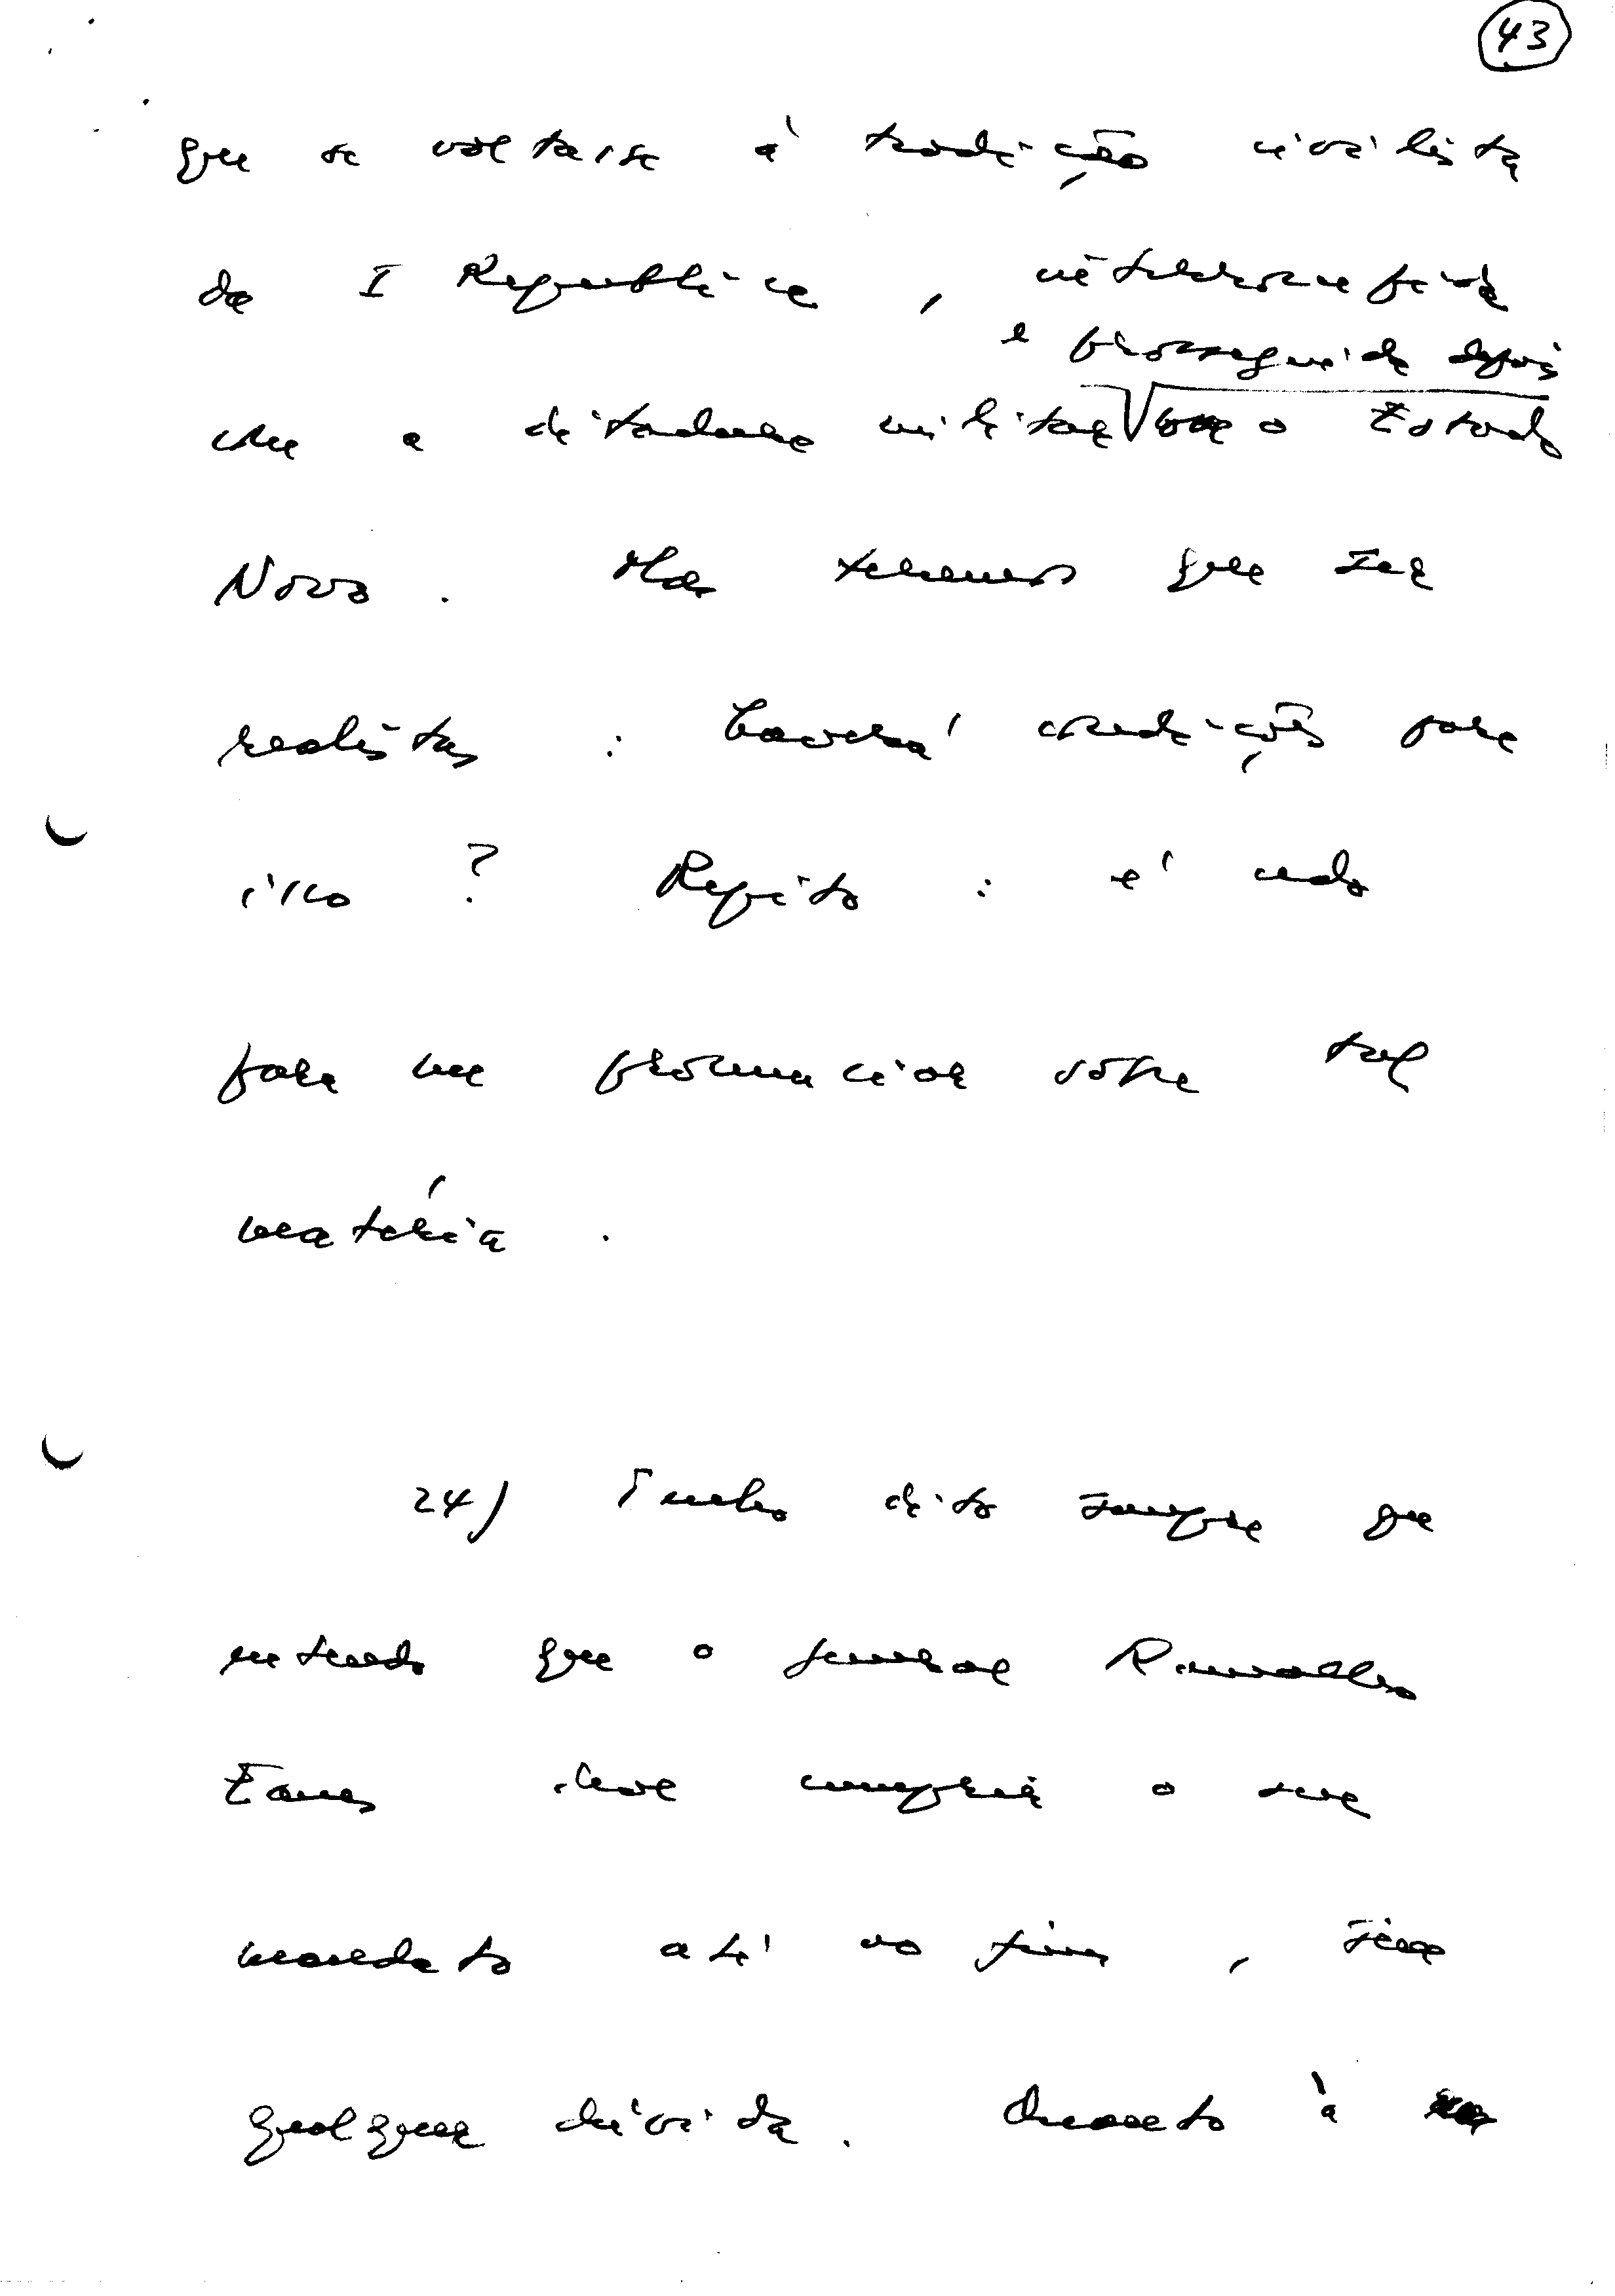 43
que se voltasse à tradição civilista
da I República, interrompida
e prosseguida depois
com a ditadura militar √ com o Estado
Novo. Mas teremos que ser
realistas: haverá condições para
isso? Repito: é cedo
para me pronunciar sobre tal
matéria.
24) Tenho dito sempre que
entendo que o general Ramalho
Eanes deve cumprir o seu
mandato até ao fim, sem
qualquer dúvida. Quanto à